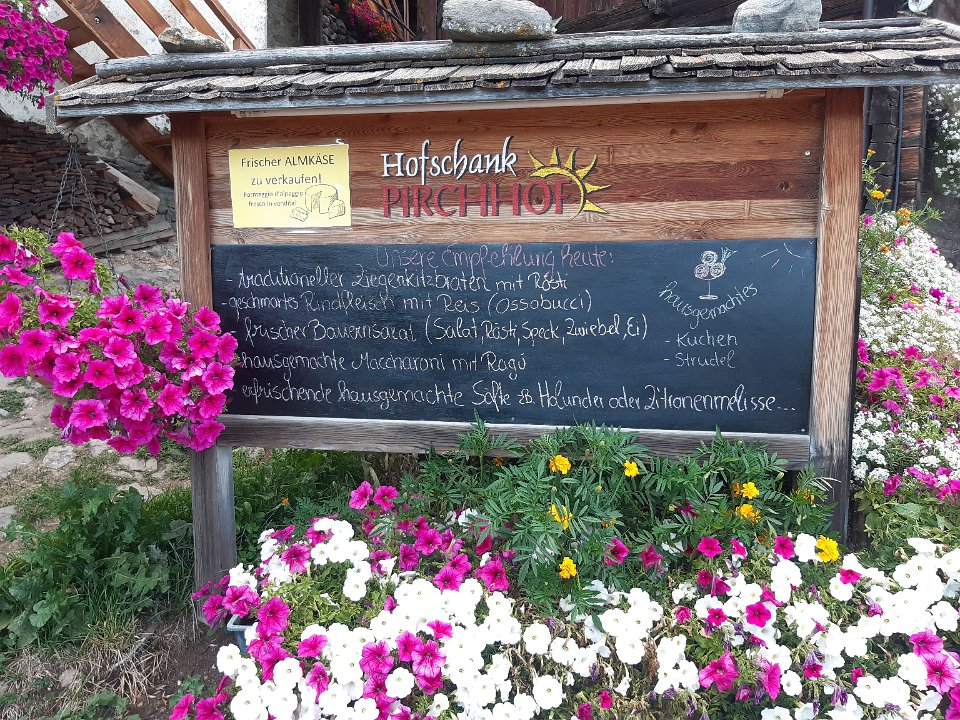 Frischer ALMKÄSE
zu verkaufen!
Formaggio d'alpeggio
fresco in vendita!
Hofschank
PIRCHHOF
Unsere Empfehlung heute:
- traditioneller Ziegenkitzbraten mit Rösti
- geschmortes Rindfleisch mit Reis (Ossobucci)
- frischer Bauernsalat (Salat, Rösti, Speck, Zwiebel, Ei)
- hausgemachte Maccharoni mit Ragú
- erfrischende hausgemachte Säfte zB. Holunder oder Zitronenmelisse...
hausgemachtes
- Kuchen
- Strudel